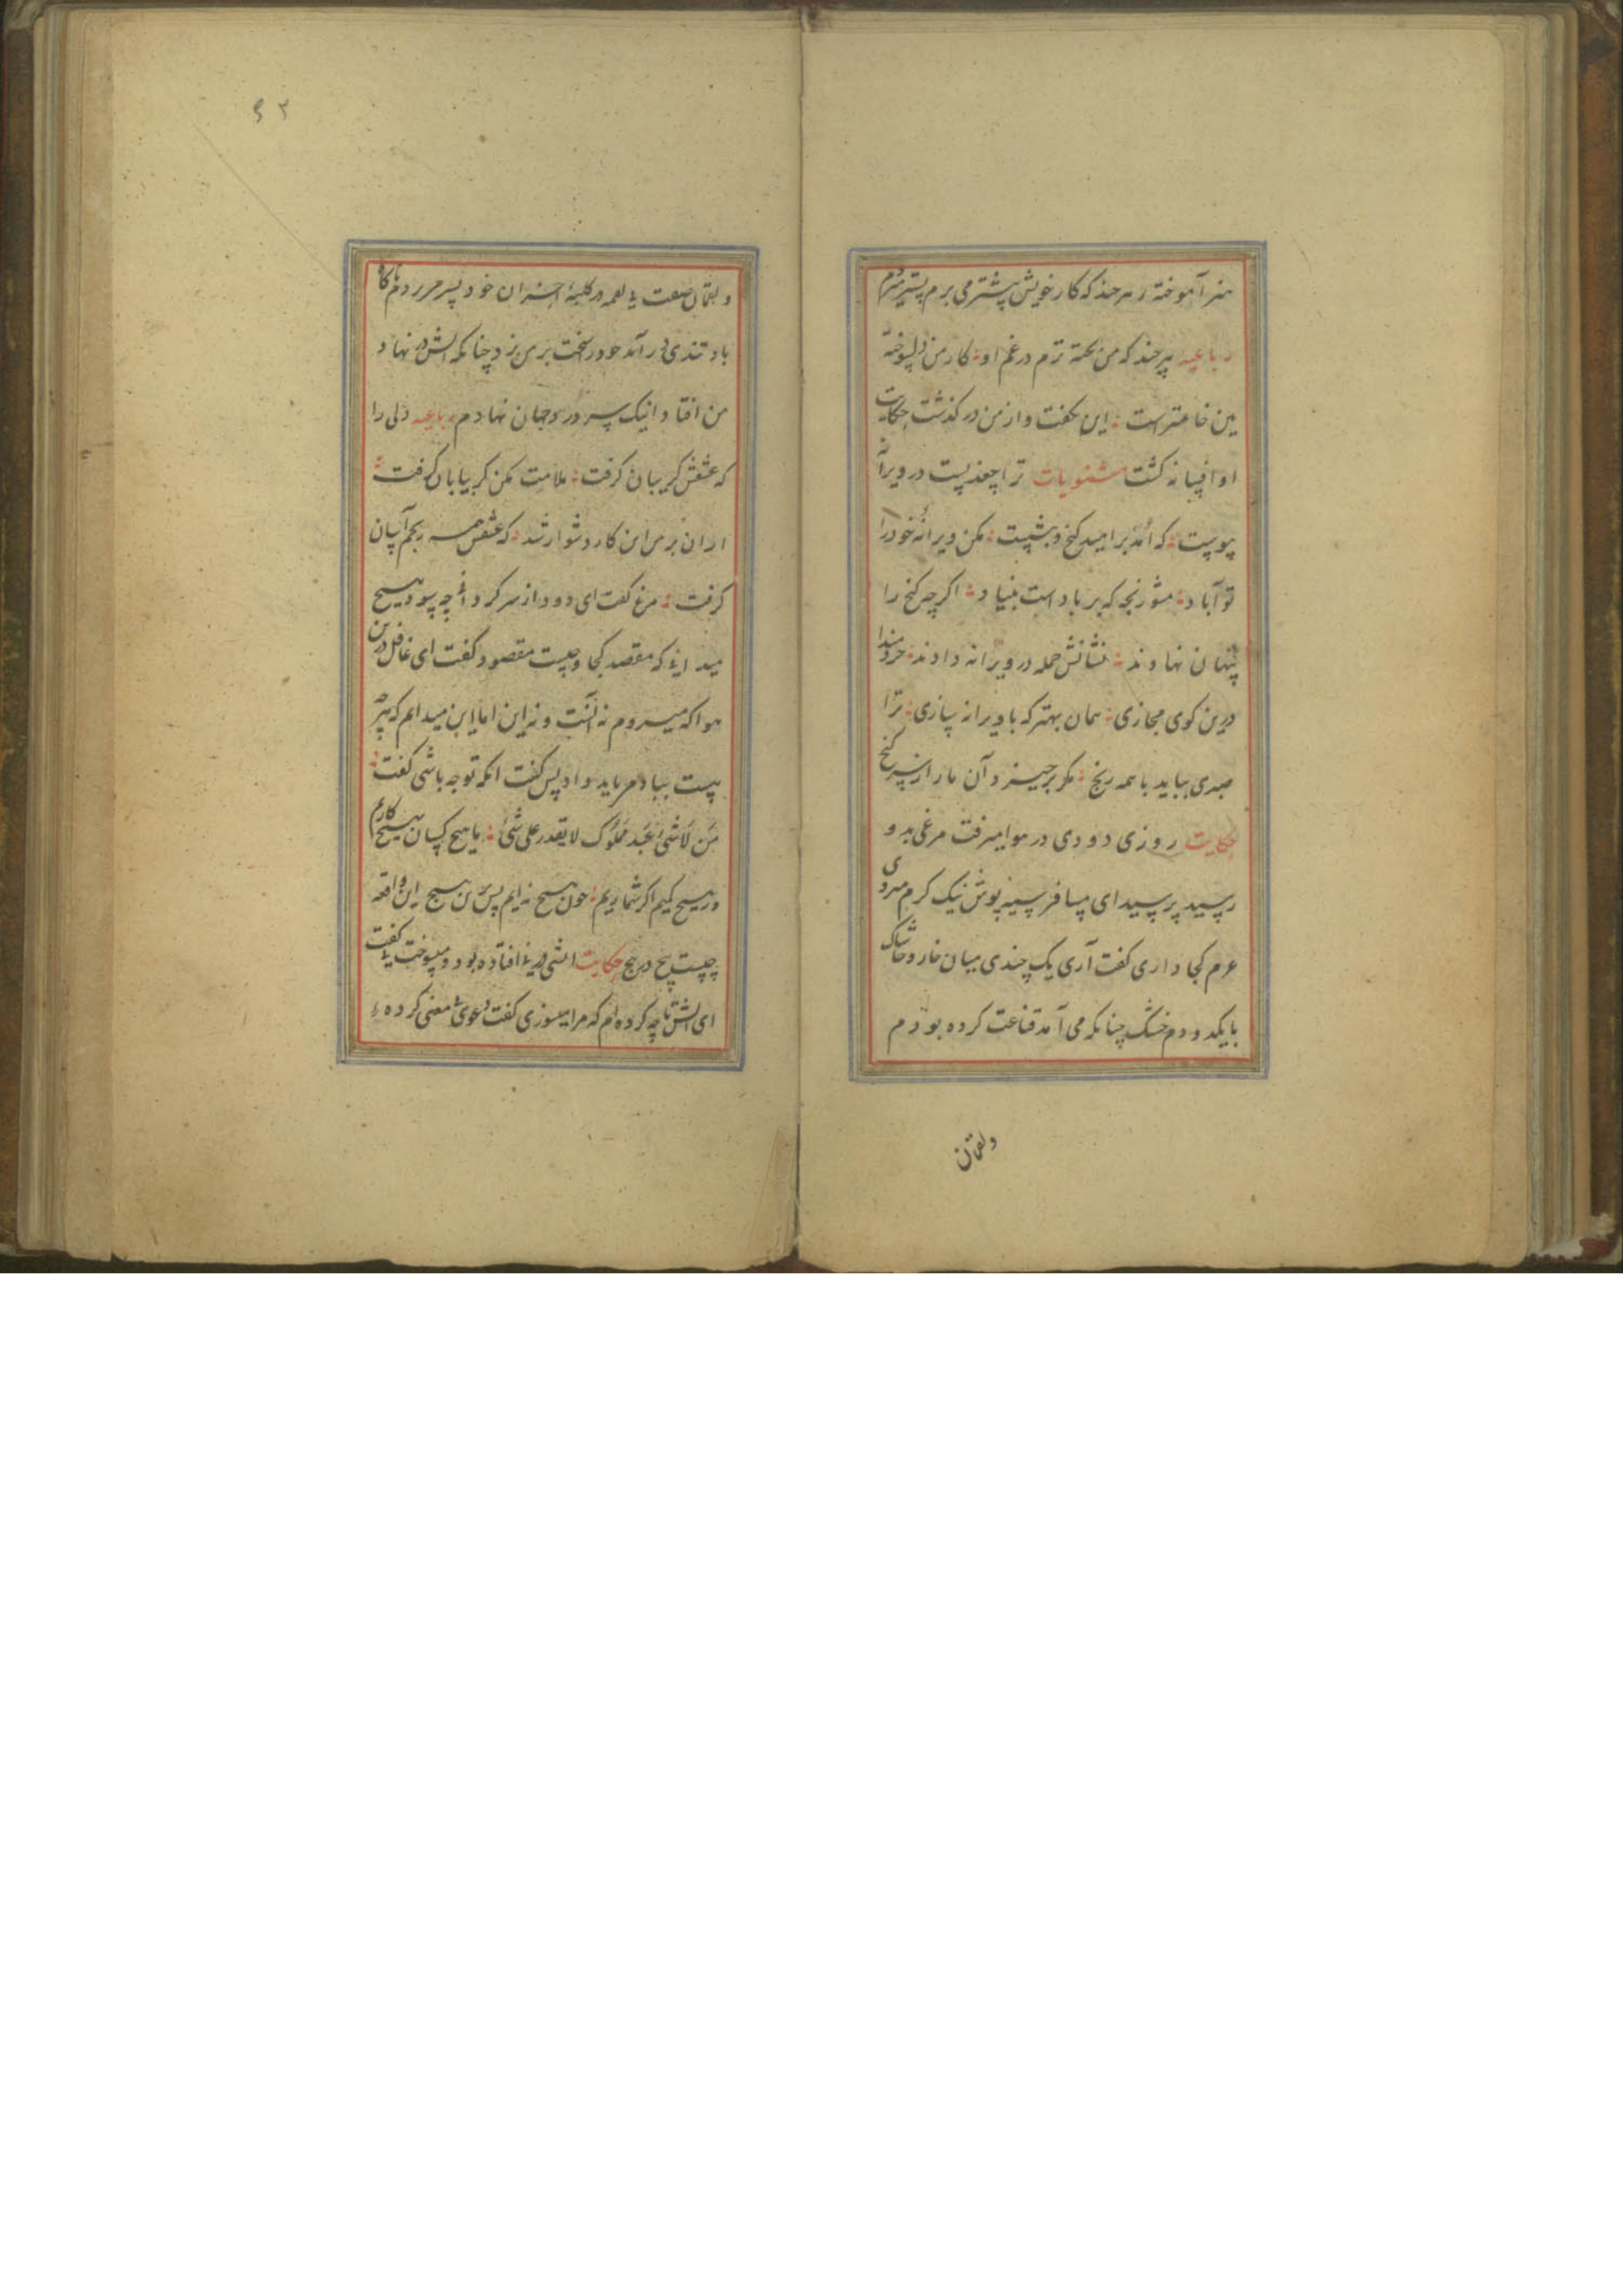 هنر آموخته ر هرچند که کار خویش پیشتر می برم پستر میبرم
رباعیه هرچند که من پخته ترم در غم او کار من دلسوخته
بین خامترست این بگفت و از من در گذشت حکایت
او افسانه گشت مثنویات ترا چغدیست در ویرانه
پیوست که آمد بر امید گنج و بنشست مکن ویرانه خود را
تو آباد مشو رنجه که بر بادست بنیاد اگرچه گنج را
پنهان نهادند نشانش جمله در ویرانه دادند خردمندا
درین کوی مجازی همان بهتر که با ویرانه سازی ترا
صبری بباید با همه رنج مگر برخیزد آن مار از سر گنج
حکایت روزی دودی در هوا میرفت مرغی بدو
رسید پرسید ای مسافر سیه پوش نیک گرم میروی
عزم کجا داری گفت آری یک چندی میان خار و خاشاک
بایکدودم خشک چنانکه می آمد قناعت کرده بودم
ولقمان
۴۲
و لقمان صفت در کلبه احزان خود بسر می بردم ناگاه
باد تندی در آمد خود را سخت بر من زد چنانکه آتش در نهاد
من افتاد اینک سر در جهان نهادم رباعیه دلی را
که عشقش گریبان گرفت ملامت مکن گر بیابان گرفت
از ان بر من این کار دشوار شد که عشقش همه آسان
گرفت مرغ گفت ای دود از سر کرد آنچه سود هیچ
میدانی که مقصد کجا و چیست مقصود گفت ای غافل درین
هوا که میروم نه آنست و نه این اما این میدانم که هرچه
هست بباد می باید داد پس گفت آنکه تو چه باشی گفت
من لاشئ عبد مملوک لا یقدر علی شئ با هیچ کسان هیچ کارم
ور هیچ کیم اگر شماریم چون هیچ نه ایم پس من هیچ این واقعه
چیست هیچ در هیچ حکایت آتشی در نی افتاده بود و میسوخت نی گفت
ای آتش ما چه کرده ام که مرا میسوزی گفت دعوی بی معنی کرده